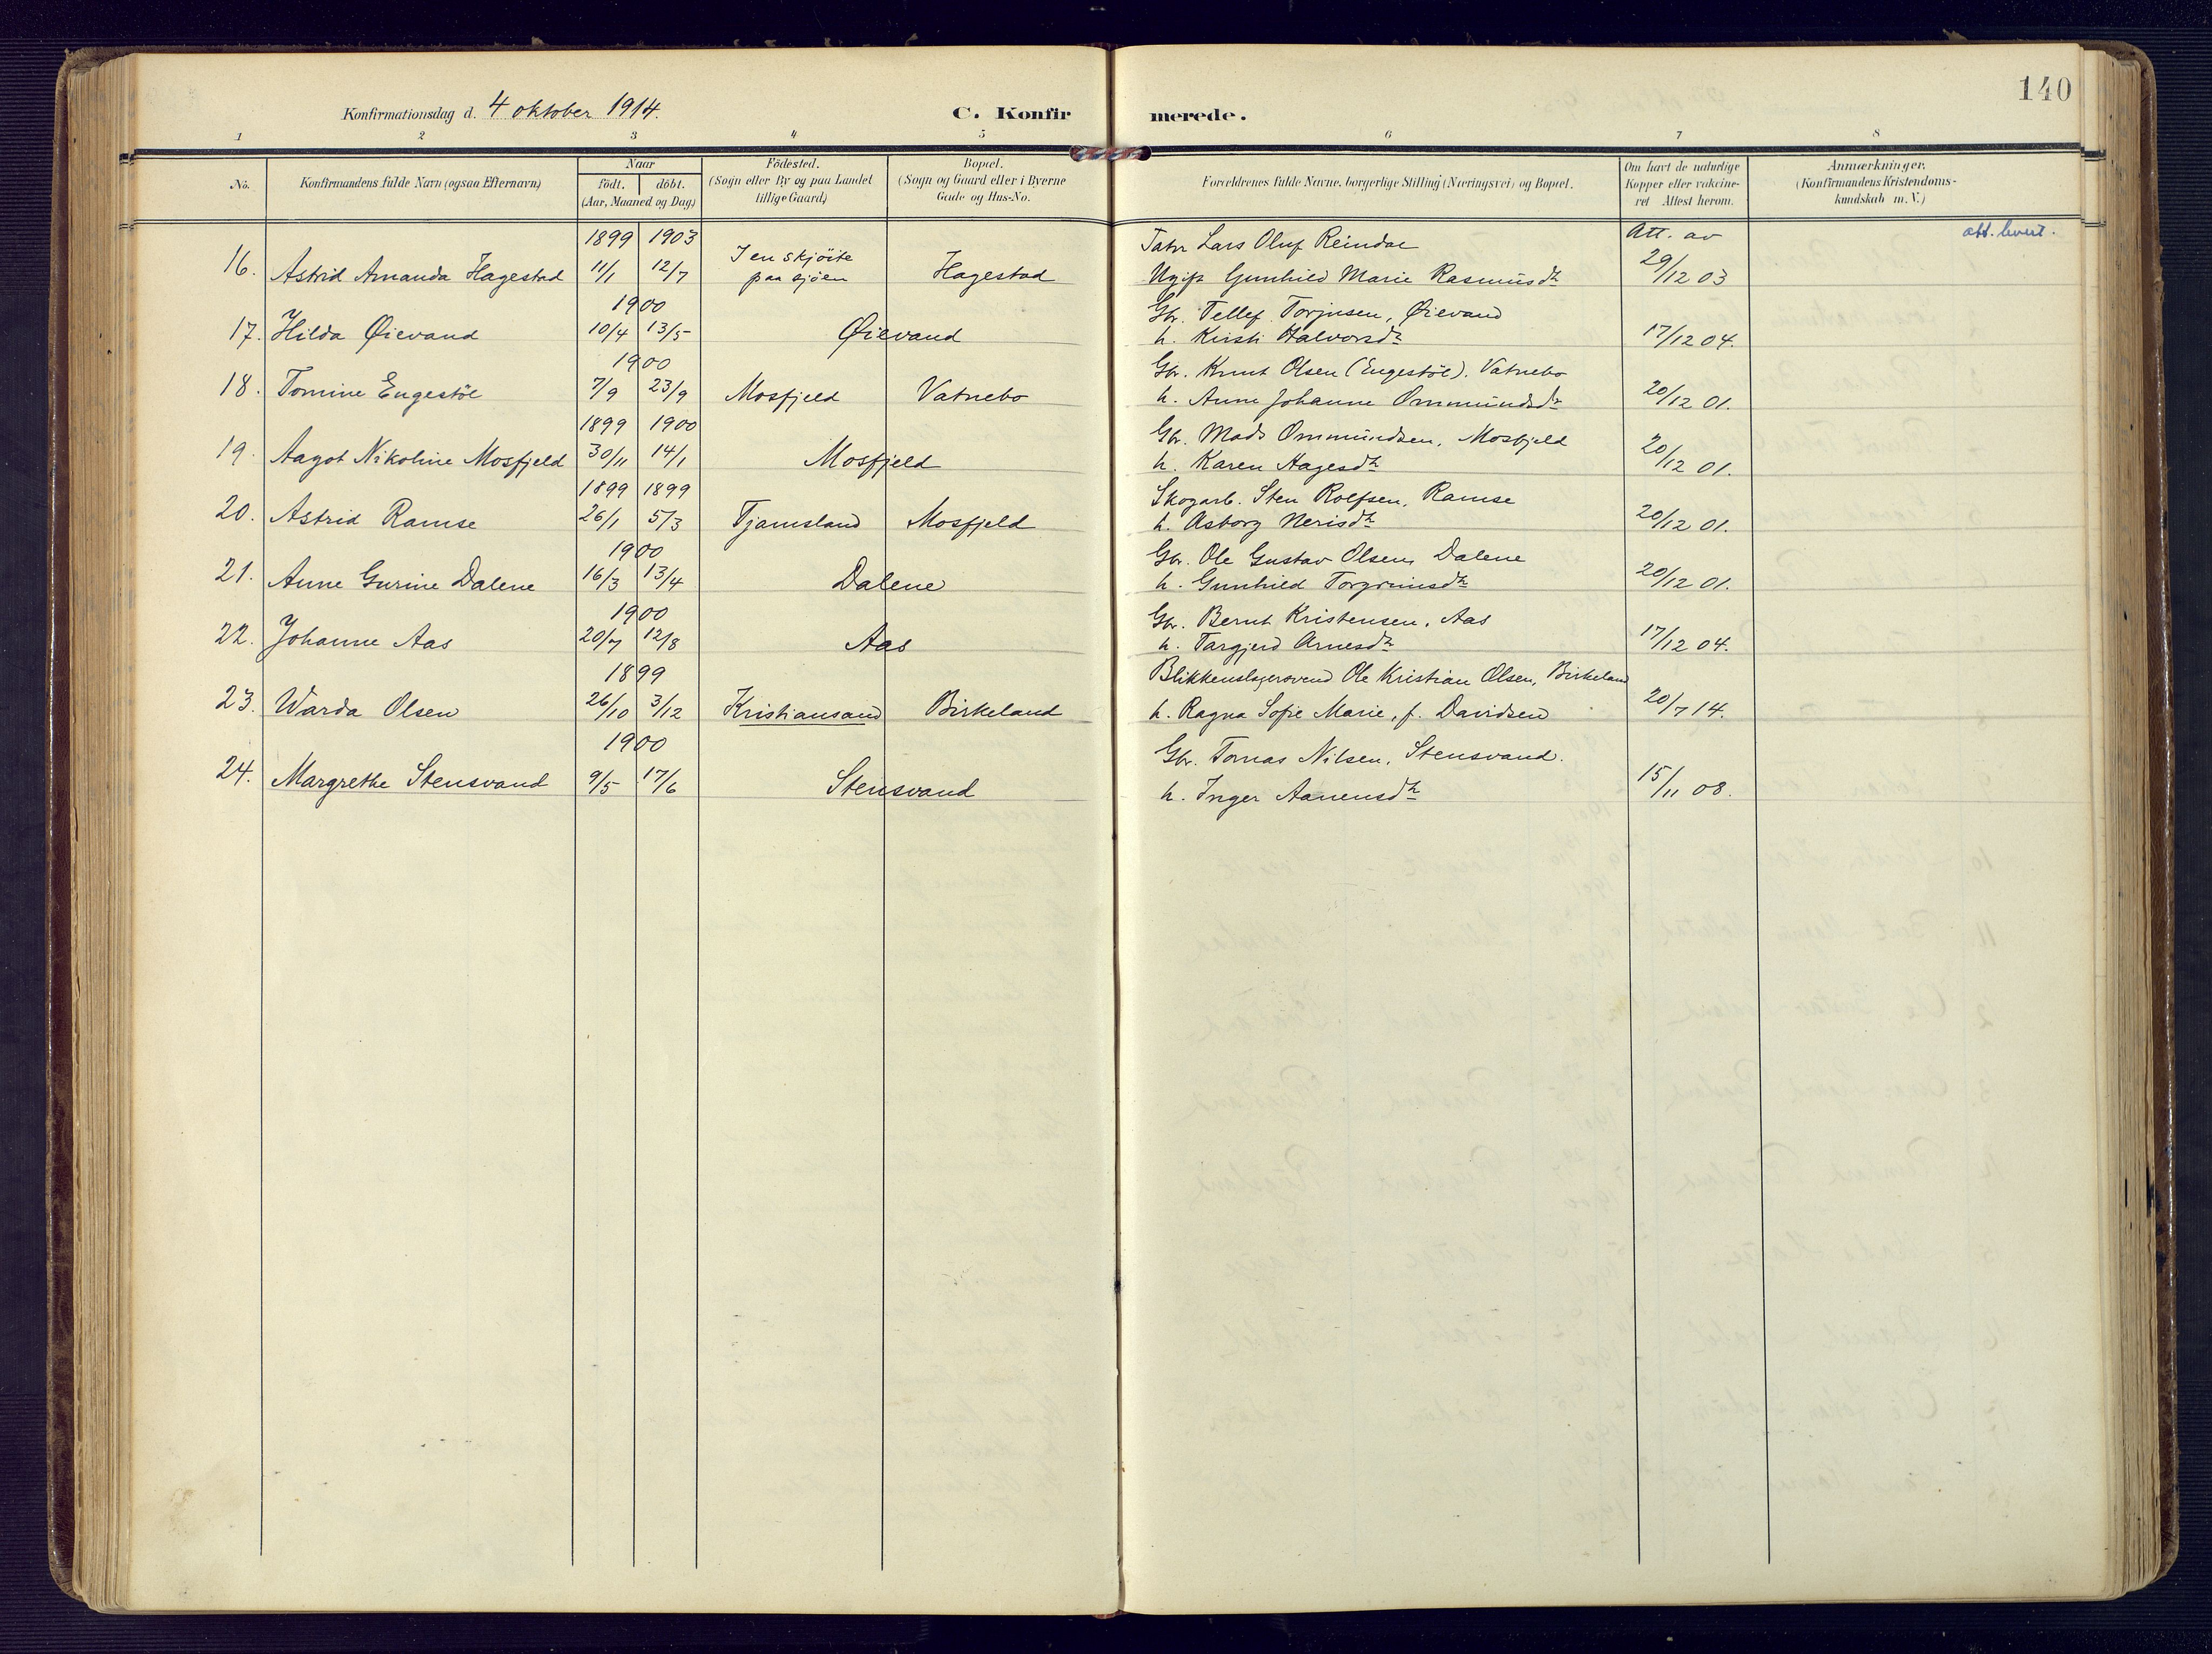 140
Konfirmationsdag d. 4 oktober 1914.
C. Konfirmerede.
1 2 3 4 5 6 7 8
No.
Konfirmandens fulde Navn (ogsaa Efternavn)
Naar
födt. döbt.
(Aar, Maaned og Dag)
Födested.
(Sogn eller By og paa Landet
tillige Gaard)
Bopæl.
(Sogn og Gaard eller i Byerne
Gade og Hus-No.
Forældrenes fulde Navne, borgerlige Stilling (Næringsvei) og Bopæl.
Om havt de naturlige
Kopper eller vakcine-
ret Attest herom.
Anmærkninger.
(Konfirmandens Kristendoms-
kundskab m. V.)
1899 1903 I en skjöite Tater Lars Oluf Reindal Att. av att. levert.
16. Astrid Amanda Hagestad 11/1 12/7 paa sjöen Hagestad Ugift Gunhild Marie Rasmusdtr 29/12 03
1900 Gbr. Tellef Torjusen, Øievand
17. Hilda Øievand 10/4 13/5 Øievand h. Kirsti Halvorsdtr 17/12 04.
1900 Gbr. Knut Olsen (Engestöl). Vatnebo
18. Tomine Engestöl 7/9 23/9 Mosfjeld Vatnebo h. Anne Johanne Ommundsdtr 20/12 01.
1899 1900 Gbr. Mads Ommundsen, Mosfjeld
19. Aagot Nikoline Mosfjeld 30/11 14/1 Mosfjeld h. Karen Aagesdtr 20/12 01.
1899 1899 Skogarb. Sten Rolfsen, Ramse
20. Astrid Ramse 26/1 5/3 Tjamsland Mosfjeld h. Asborg Nerisdtr 20/12 01.
1900 Gbr. Ole Gustav Olsen, Dalene
21. Anne Gurine Dalene 16/3 13/4 Dalene h. Gunhild Torgrimsdtr 20/12 01.
1900 Gbr. Bernt Kristensen, Aas
22. Johanne Aas 20/7 12/8 Aas h. Targjerd Arnesdtr 17/12 04.
1899 Blikkenslagersvend Ole Kristian Olsen, Birkeland
23. Warda Olsen 26/10 3/12 Kristiansand Birkeland h. Ragna Sofie Marie, f. Davidsen 20/7 14.
1900 Gbr. Tomas Nilsen, Stensvand.
24. Margrethe Stensvand 9/5 17/6 Stensvand h. Inger Aanensdtr 15/11 08.